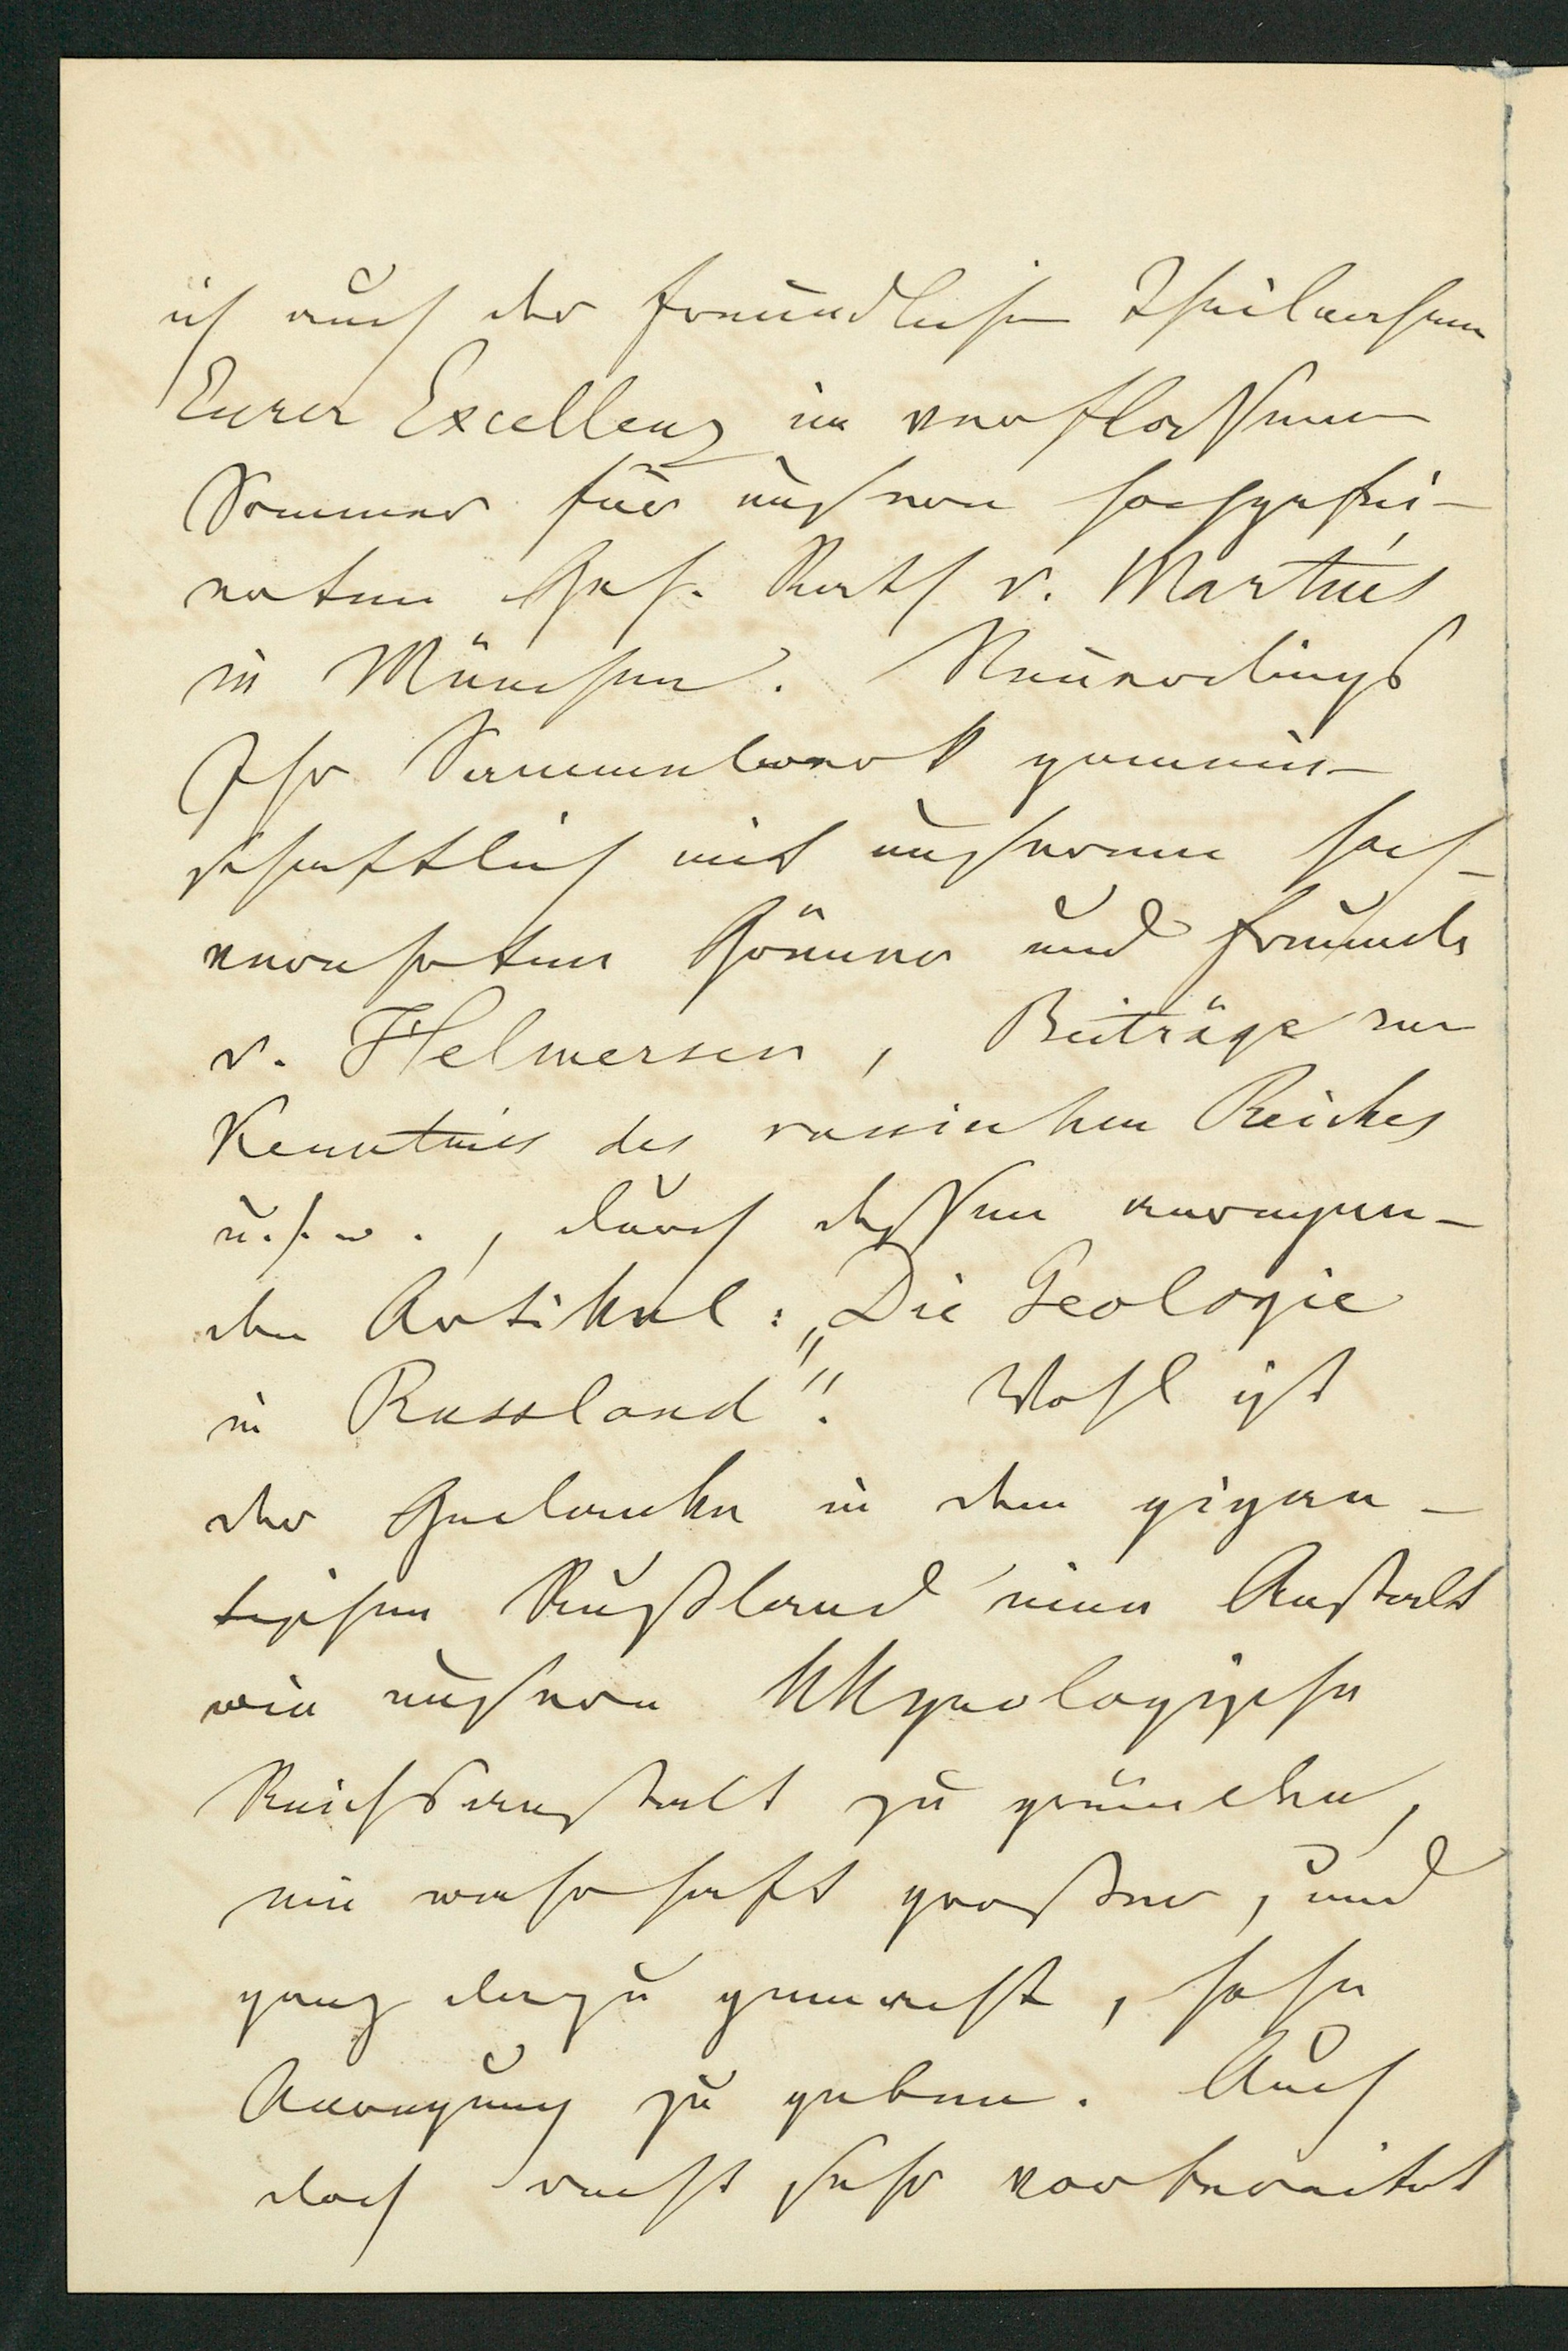 ich auch der freundlichen Theilnahme
Eurer Excellenz im verflossenen
Sommer für unseren hochgefei-
erten Geh. Rath v. Martius
in München. Neuerdings
Ihr Sammelwerk gemein-
schaftlich mit unserem hoch-
verehrten Gönner und Freunde
v. Helmersen, Beiträge zur
Kenntniss des russischen Reiches
u. s. w., durch dessen anregen-
den Artikel: „Die Geologie
in Russland“. Wohl ist
der Gedanke in dem gigan-
tischen Rußland eine Anstalt
wie unsere k k geologische
Reichsanstalt zu gründen,
ein wahrhaft großer, und
ganz dazu gemacht, hohe
Anregung zu geben. Auch
doch recht sehr vorbereitet